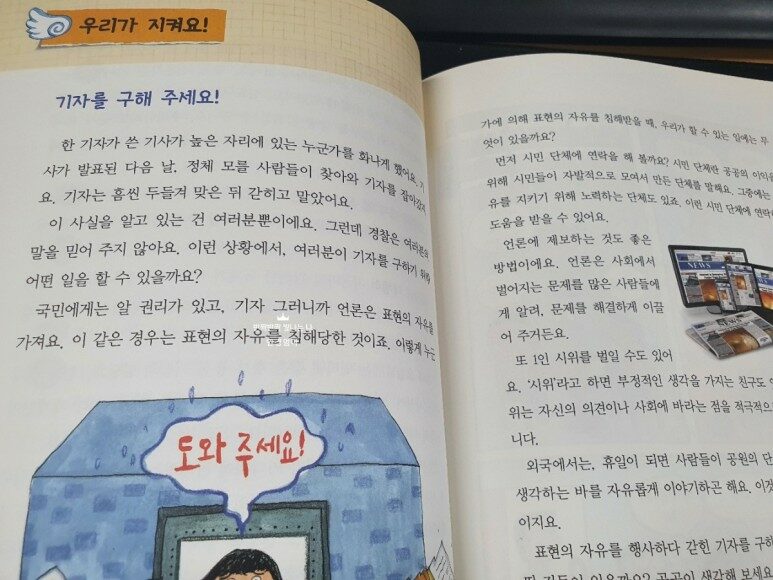 우리가 지켜요!
기자를 구해 주세요!
한 기자가 쓴 기사가 높은 자리에 있는 누군가를 화나게 했어요. 기
사가 발표된 다음 날, 정체 모를 사람들이 찾아와 기자를 잡아갔지
요. 기자는 흠씬 두들겨 맞은 뒤 갇히고 말았어요.
이 사실을 알고 있는 건 여러분뿐이에요. 그런데 경찰은 여러분의
말을 믿어 주지 않아요. 이런 상황에서, 여러분이 기자를 구하기 위해
어떤 일을 할 수 있을까요?
국민에게는 알 권리가 있고, 기자 그러니까 언론은 표현의 자유를
가져요. 이 같은 경우는 표현의 자유를 침해당한 것이죠. 이렇게 누군
도와 주세요!
가에 의해 표현의 자유를 침해받을 때, 우리가 할 수 있는 일에는 무
엇이 있을까요?
먼저 시민 단체에 연락을 해 볼까요? 시민 단체란 공공의 이익을
위해 시민들이 자발적으로 모여서 만든 단체를 말해요. 그중에는
유를 지키기 위해 노력하는 단체도 있죠. 이런 시민 단체에 연락
도움을 받을 수 있어요.
언론에 제보하는 것도 좋은
방법이에요. 언론은 사회에서
벌어지는 문제를 많은 사람들에
게 알려, 문제를 해결하게 이끌
어 주거든요.
NEWS
또 1인 시위를 벌일 수도 있어
요. '시위'라고 하면 부정적인 생각을 가지는 친구도
위는 자신의 의견이나 사회에 바라는 점을 적극적으
니다.
외국에서는, 휴일이 되면 사람들이 공원의 단
생각하는 바를 자유롭게 이야기하곤 해요. 이것
이지요.
표현의 자유를 행사하다 갇힌 기자를 구하